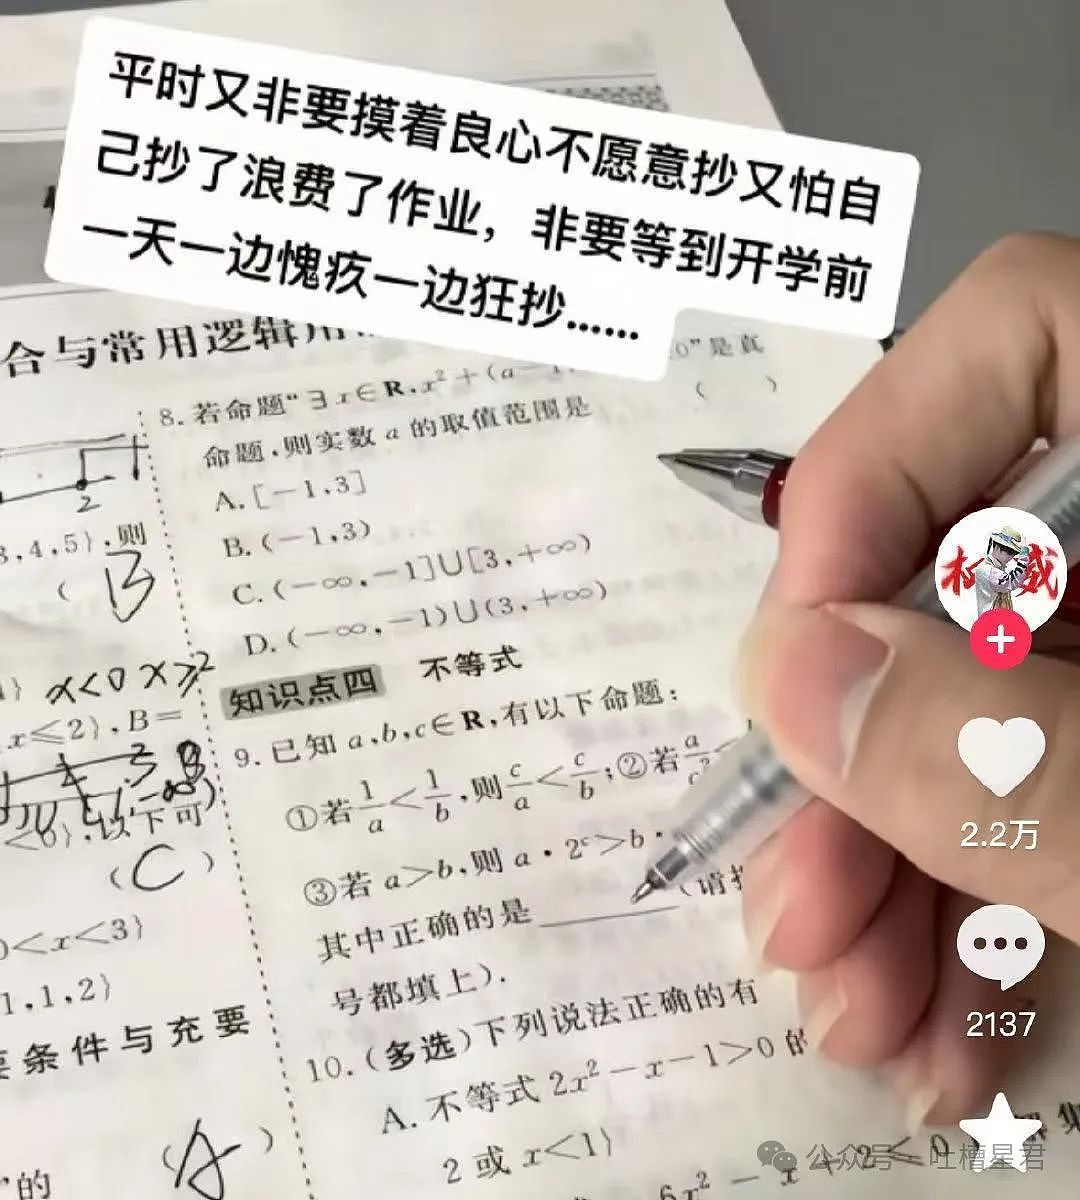 平时又非要摸着良心不愿意抄又怕自
己抄了浪费了作业，非要等到开学前
一天一边愧疚一边狂抄......
合与常用逻辑用
8.若命题"∃x∈R,x²+(a-1 0"是真
命题,则实数a的取值范围是 ( )
A.[-1,3]
B.(-1,3)
C.(-∞,-1]∪[3,+∞)
D.(-∞,-1)∪(3,+∞)
知识点四 不等式
9.已知a,b,c∈R,有以下命题:
①若1/a<1/b,则c/a<c/b;②若a/c²<
③若a>b,则a·2ᶜ>b·
其中正确的是 (请把
号都填上).
10.(多选)下列说法正确的有
A.不等式2x²-x-1>0的
2或x<1}
6x²-x+2≤0 解集
2
3,4,5},则
( B
x<0 x≥2
x≤2},B=
3 B
<6},以下可
(C)
<x<3}
1,1,2}
要条件与充要
(A)
"的
权威
2.2万
2137
公众号 吐槽星君